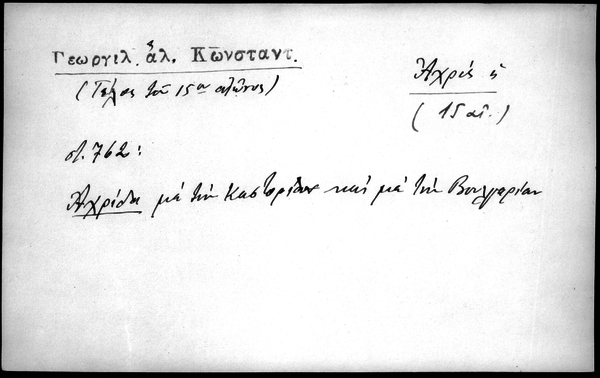 Γεωργιλ. ἅλ. Κωνσταντ.
(Τέλος τοῦ 15ου αἰῶνος)
Ἀχρίς ἡ
(15 αἰ.)
στ. 762:
Ἀχρίδα μὲ τὴν Καστορίαν καὶ μὲ τὴν Βουλγαρίαν